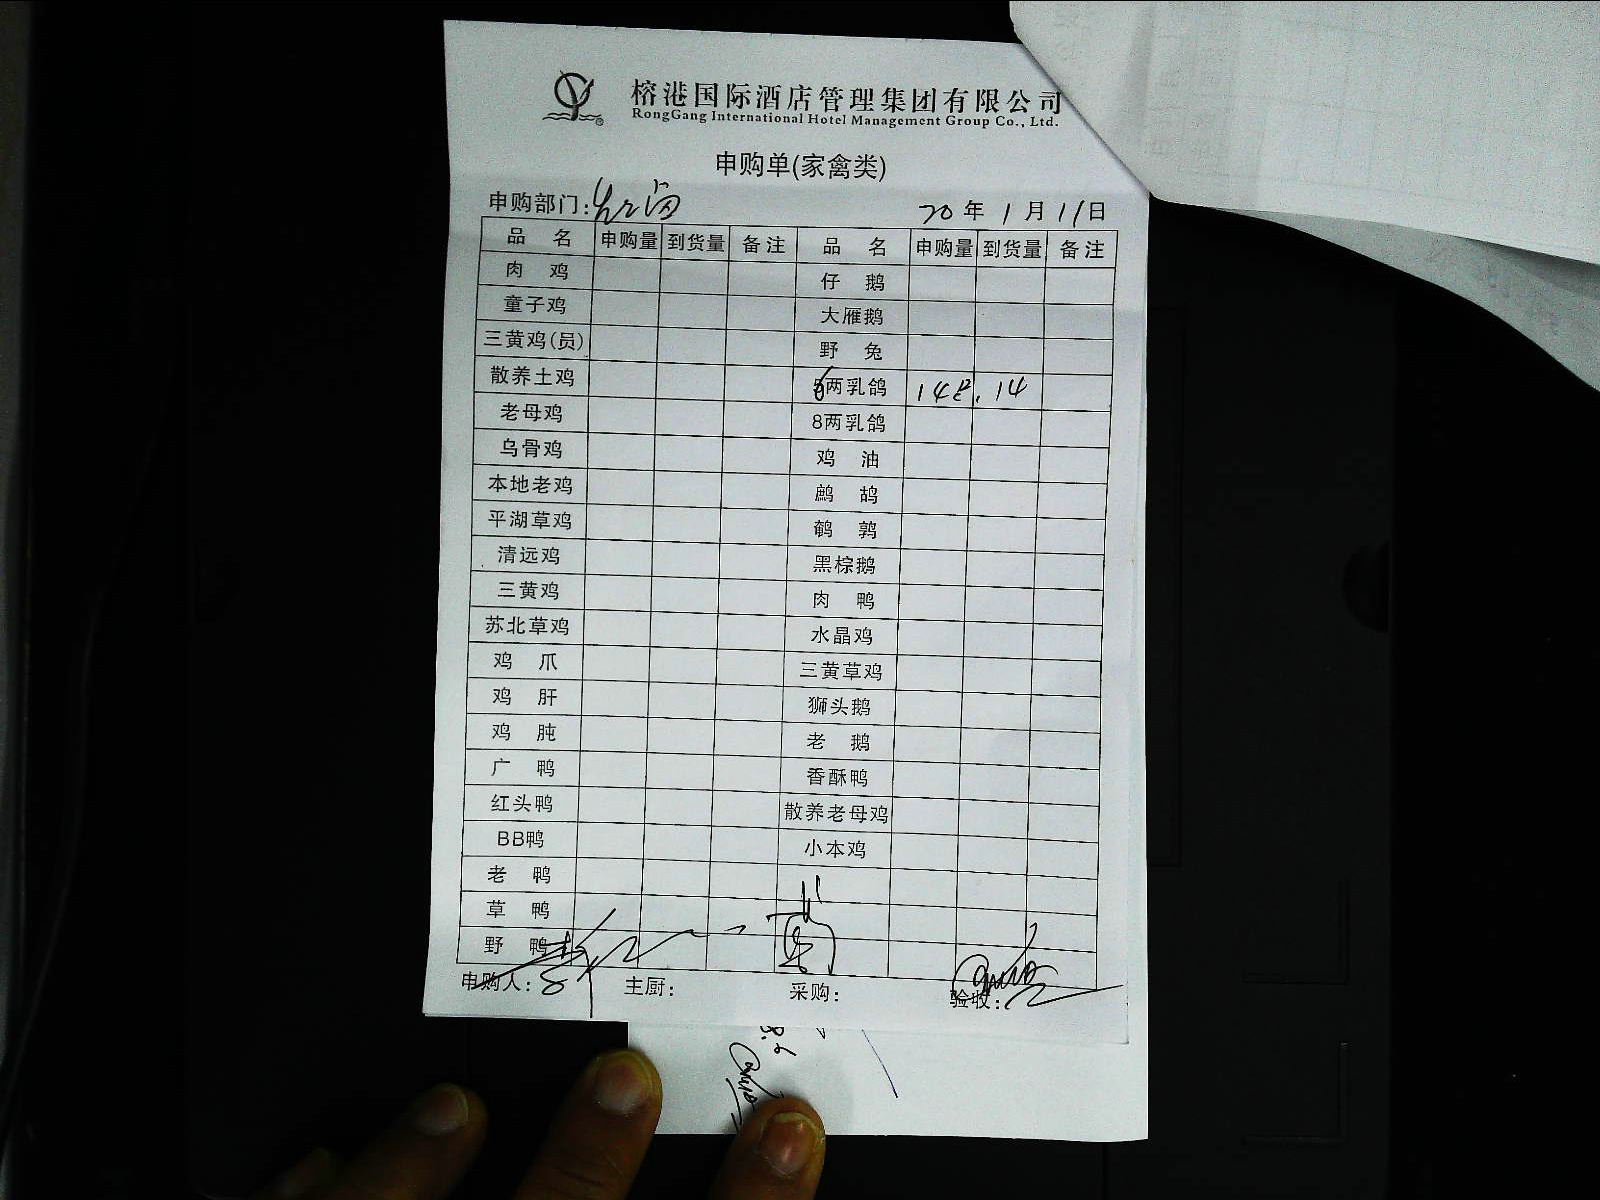 榕港国际酒店管理集团有限公司
RongGang International Hotel Management Group Co., Ltd.
申购单(家禽类)
申购部门:
20年1月11日
品 名 申购量 到货量 备注 品 名 申购量 到货量 备注
肉 鸡 仔 鹅
童子鸡 大雁鹅
三黄鸡(员) 野 兔
散养土鸡 6两乳鸽 14 14
老母鸡 8两乳鸽
乌骨鸡 鸡 油
本地老鸡 鹧 鸪
平湖草鸡 鹌 鹑
清远鸡 黑棕鹅
三黄鸡 肉 鸭
苏北草鸡 水晶鸡
鸡 爪 三黄草鸡
鸡 肝 狮头鹅
鸡 肫 老 鹅
广 鸭 香酥鸭
红头鸭 散养老母鸡
BB鸭 小本鸡
老 鸭
草 鸭
野 鸭
申购人: 主厨: 采购: 验收: